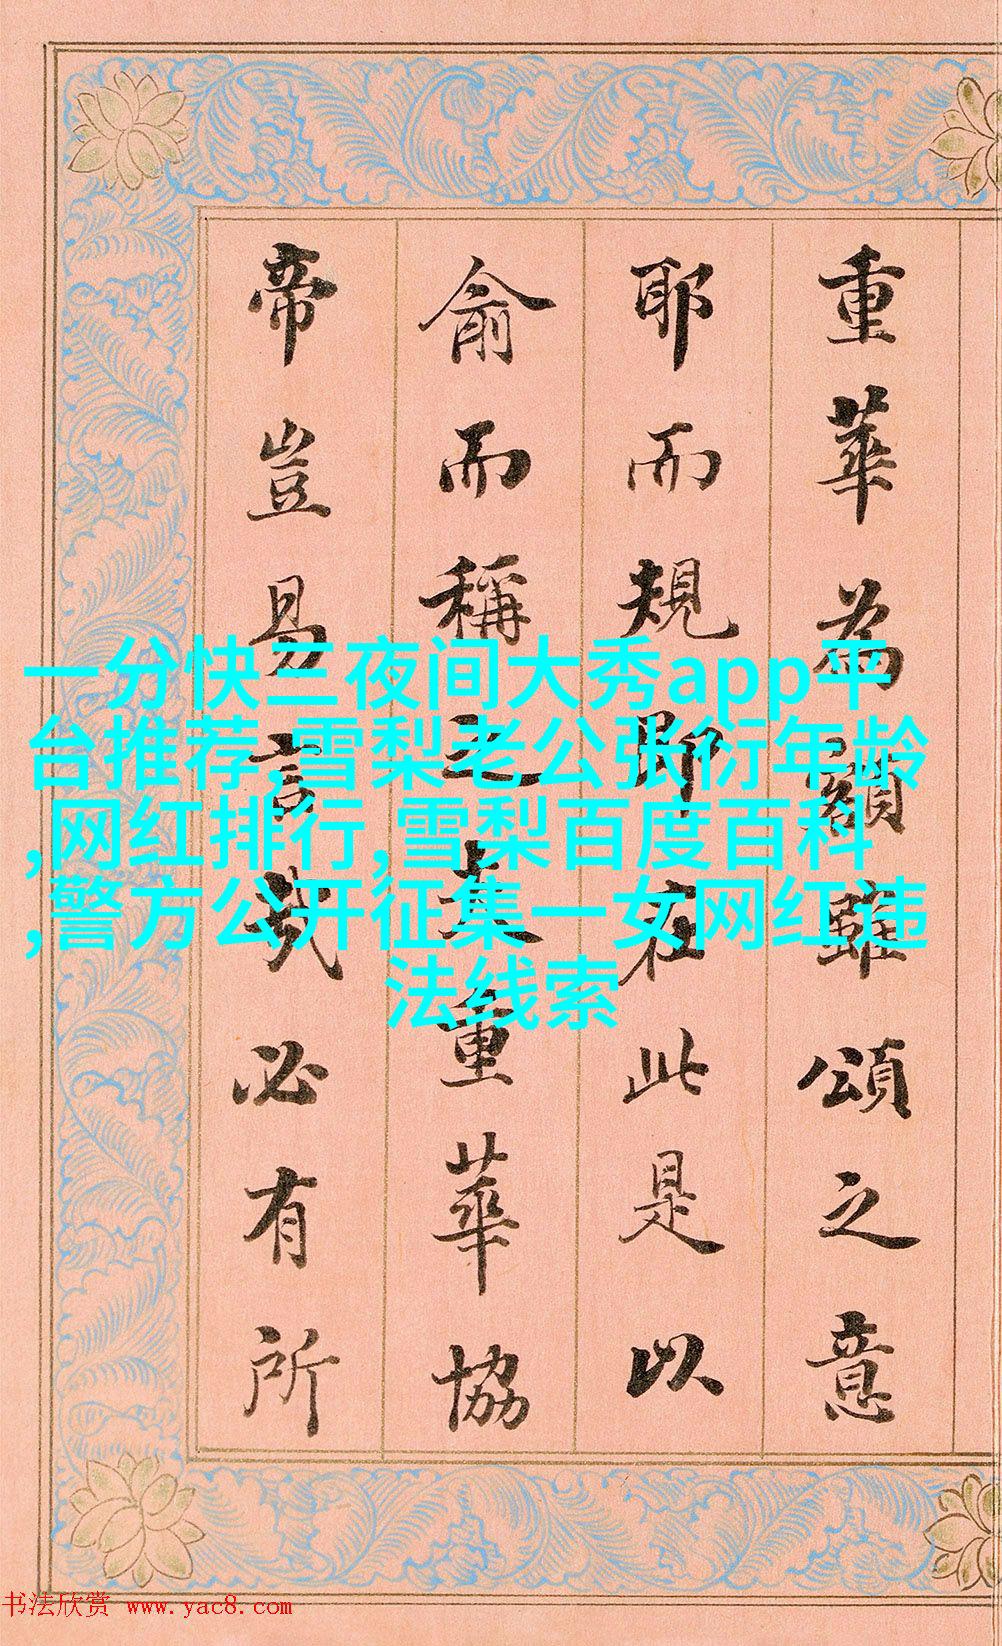 重華為額雖頌之意
耶而規即在此是以
俞而稱之其重華協
帝豈易言哉必有所
一分快三夜间大秀app平
台推荐,雪梨老公张衍年龄
,网红排行,雪梨百度百科
,警方公开征集一女网红违
法线索
书法欣赏 www.yac8.com